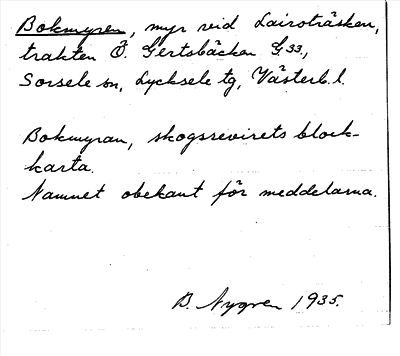 Bokmyren, myr vid Lairoträsken,
trakten Ö. Gertsbäcken G33,
Sorsele sn, Lycksele tg, Västerb. l.
Bokmyran, skogsrevirets block-
karta.
Namnet obekant för meddelarna.
B. Nygren 1935.